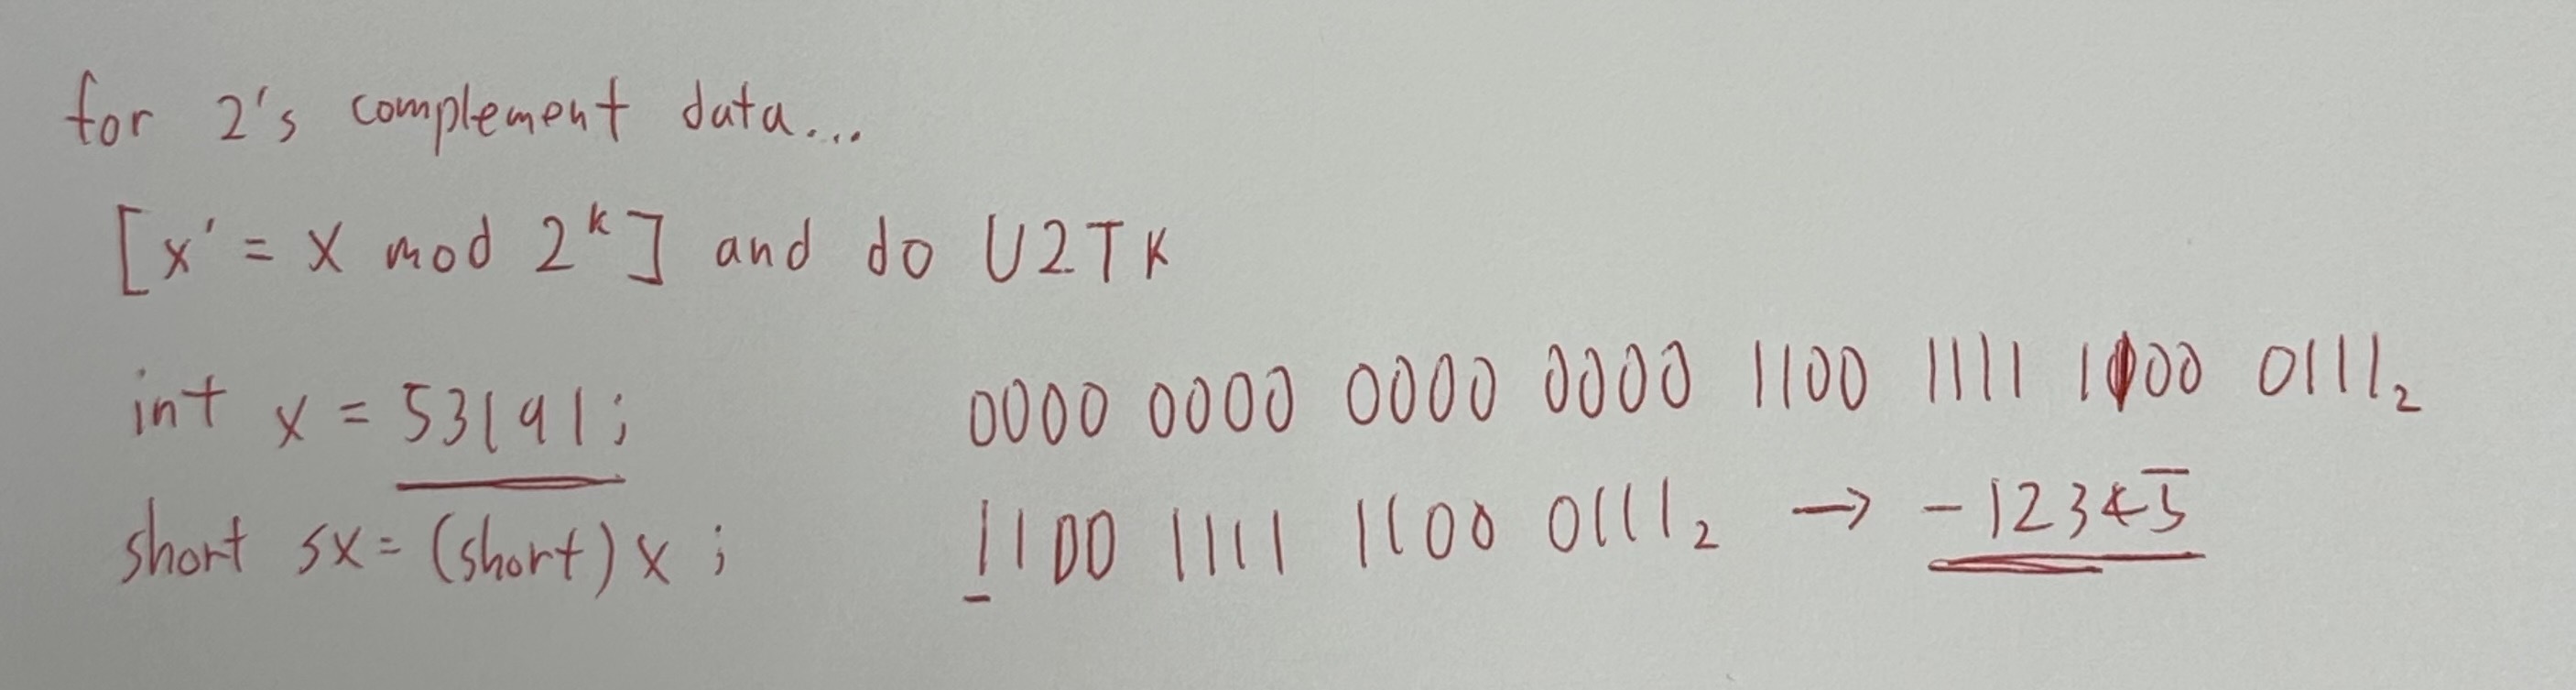 for 2's complement data...
[x' = x mod 2^k] and do U2Tk
int x = 53191; 0000 0000 0000 0000 1100 1111 1100 0111₂
short sx = (short) x; 1100 1111 1100 0111₂ → -12345